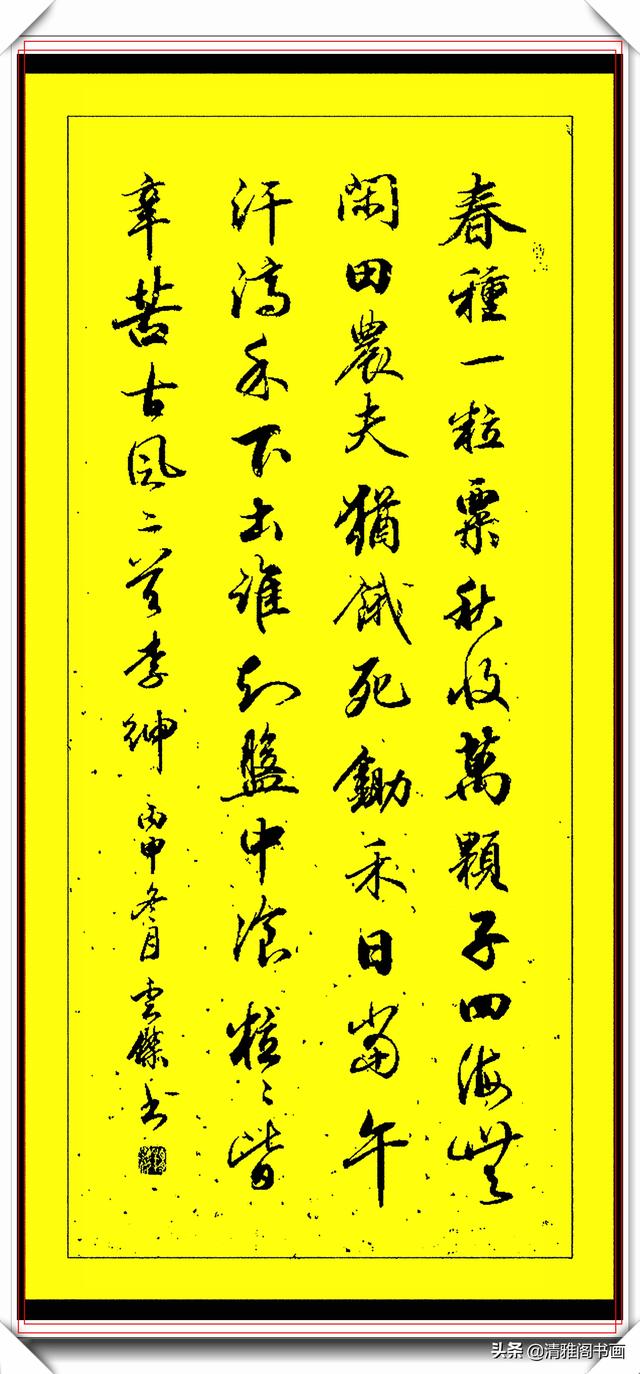 春種一粒粟秋收萬顆子四海無
閑田農夫猶餓死鋤禾日當午
汗滴禾下土誰知盤中湌粒々皆
辛苦古風二首李紳 丙申冬月雲傑書
头条 @清雅阁书画